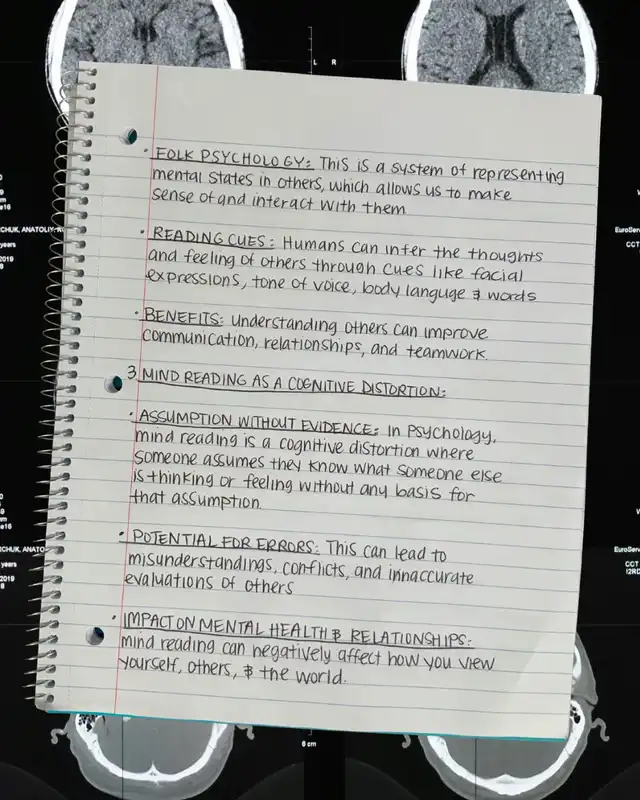 L R
• FOLK PSYCHOLOGY: This is a system of representing
mental states in others, which allows us to make
sense of and interact with them
• READING CUES: Humans can infer the thoughts
and feeling of others through cues like facial
expressions, tone of voice, body languge & words
• BENEFITS: Understanding others can improve
communication, relationships, and teamwork.
3 MIND READING AS A COGNITIVE DISTORTION:
• ASSUMPTION WITHOUT EVIDENCE: In Psychology,
mind reading is a cognitive distortion where
someone assumes they know what someone else
is thinking or feeling without any basis for
that assumption.
• POTENTIAL FOR ERRORS: This can lead to
misunderstandings, conflicts, and innaccurate
evaluations of others
• IMPACT ON MENTAL HEALTH & RELATIONSHIPS:
mind reading can negatively affect how you view
yourself, others, & the world.
CHUK, ANATOLIY
years
2019
e16
EuroServ
CCT
CHUK, ANATO
years
2019
e16
EuroServ
CCT
I2RD
6 cm